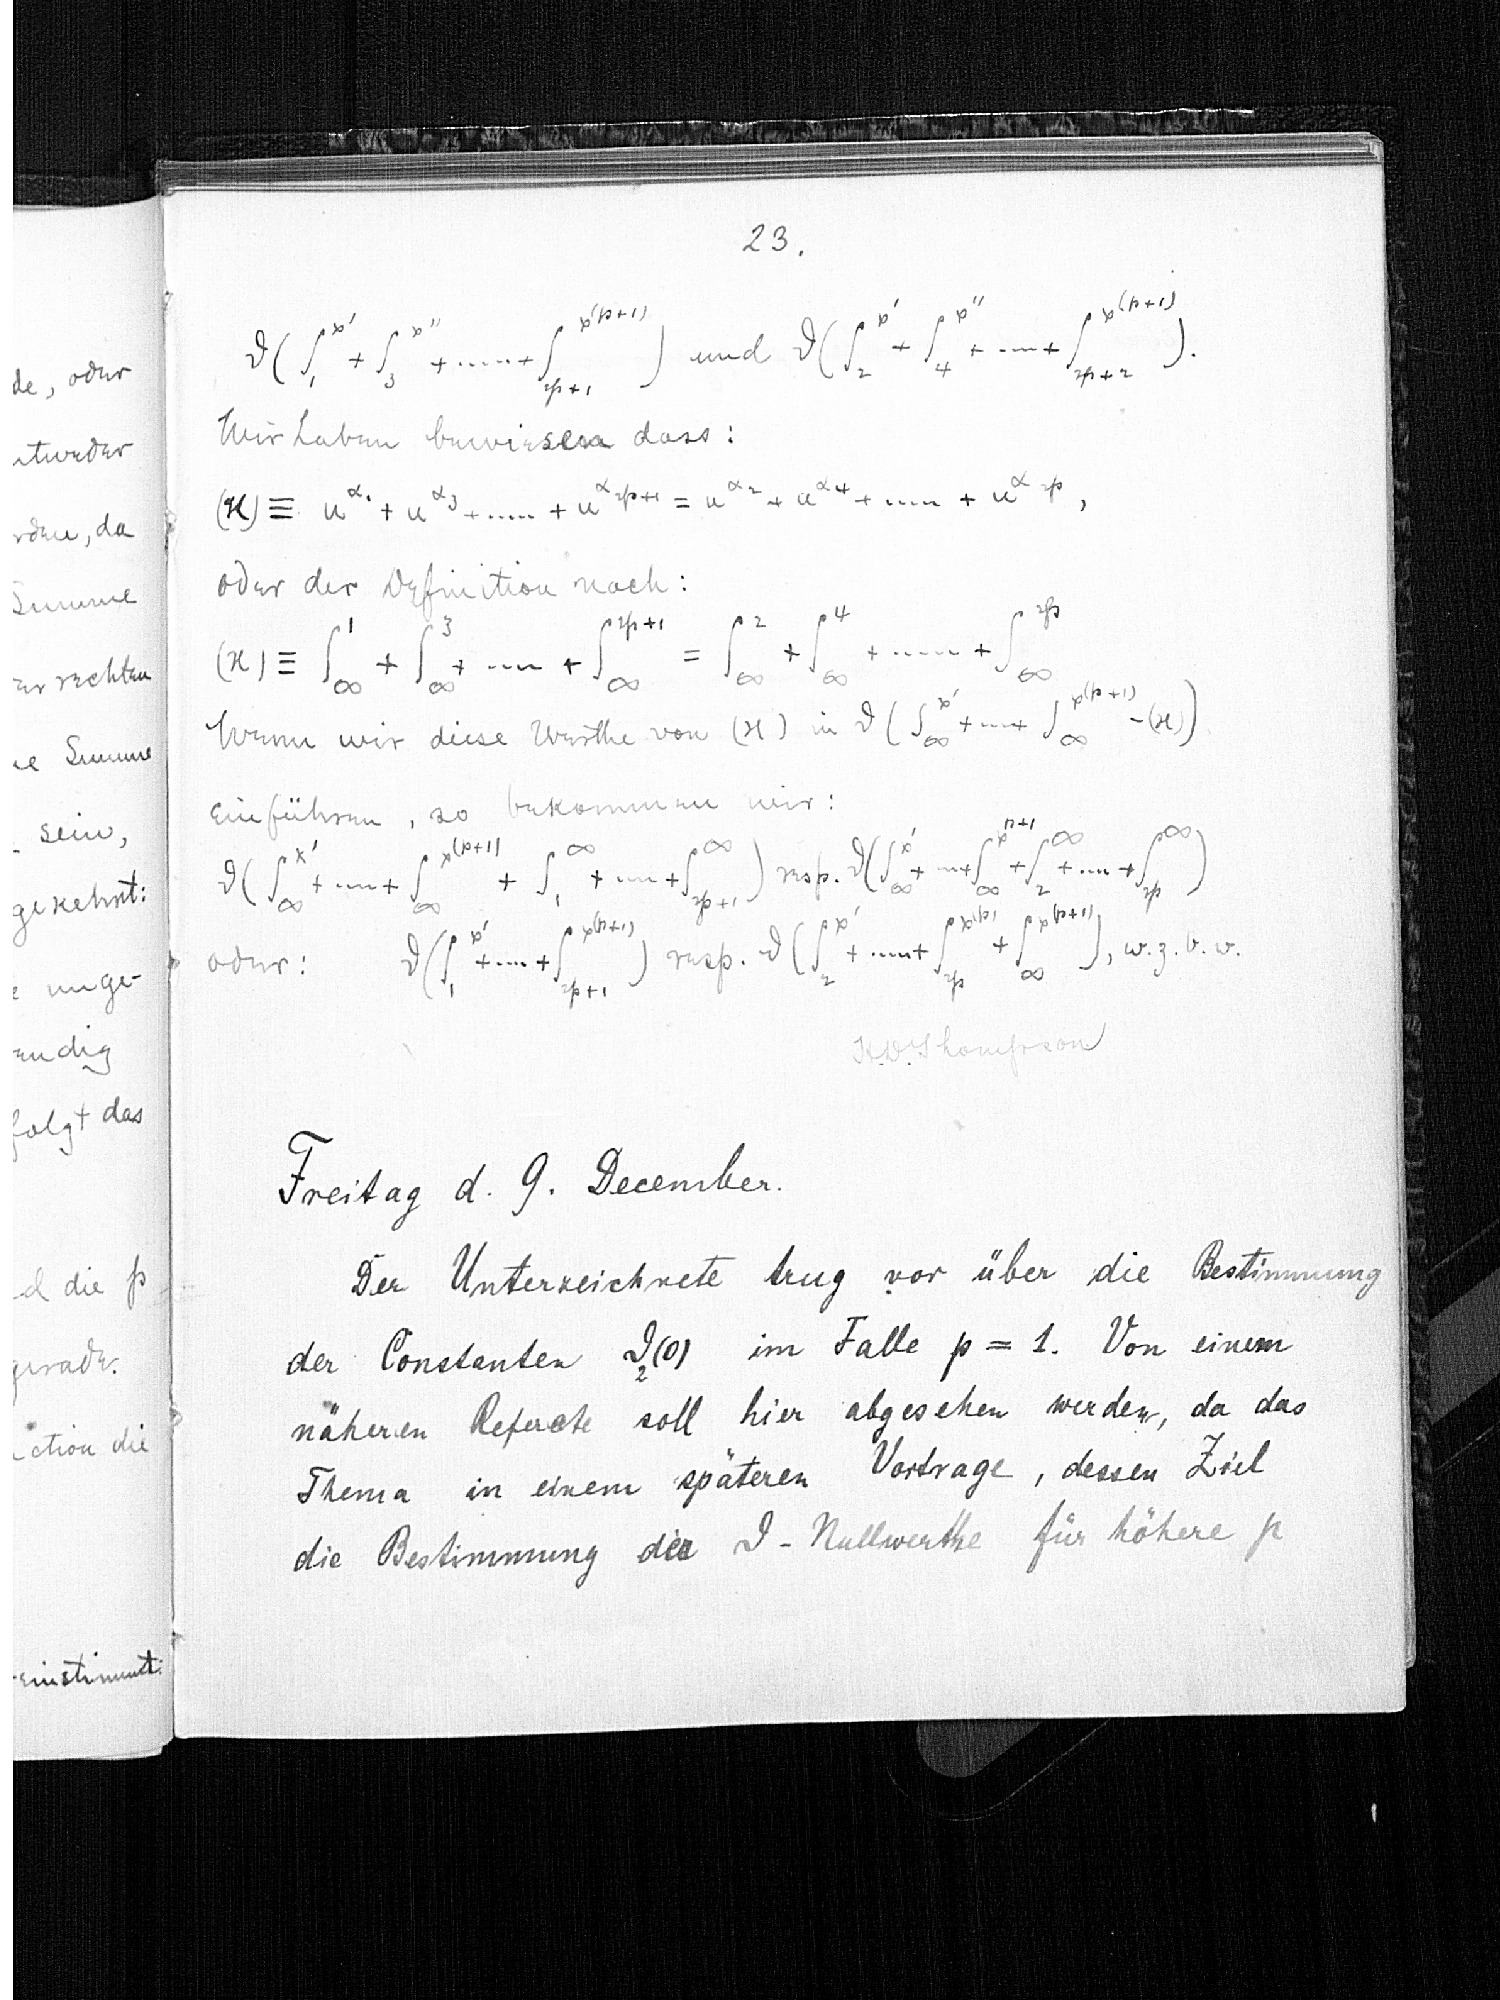 de, oder
ntweder
rden, da
Summe
er rechten
ne Summe
sein,
gekehrt:
e unge-
endig
folgt das
d die p
gerade.
ction die
einstimmt:
23.
ϑ(∫₁^{x'} + ∫₃^{x''} + ..... + ∫_{2p+1}^{x^{(p+1)}}) und ϑ(∫₂^{x'} + ∫₄^{x''} + ..... + ∫_{2p+2}^{x^{(p+1)}}).
Wir haben bewiesen dass:
(ϰ) ≡ u^{α₁} + u^{α₃} + ..... + u^{α_{2p+1}} = u^{α₂} + u^{α₄} + ..... + u^{α_{2p}},
oder der Definition nach:
(ϰ) ≡ ∫_∞^1 + ∫_∞^3 + ..... + ∫_∞^{2p+1} = ∫_∞^2 + ∫_∞^4 + ..... + ∫_∞^{2p}
Wenn wir diese Werthe von (ϰ) in ϑ(∫_∞^{x'} + ... + ∫_∞^{x^{(p+1)}} - (ϰ))
einführen, so bekommen wir:
ϑ(∫_∞^{x'} + .... + ∫_∞^{x^{(p+1)}} + ∫_1^∞ + .... + ∫_{2p+1}^∞) resp. ϑ(∫_∞^{x'} + ... + ∫_∞^{x^{p+1}} + ∫_2^∞ + .... + ∫_{2p}^∞)
oder: ϑ(∫_1^{x'} + .... + ∫_{2p+1}^{x^{(p+1)}}) resp. ϑ(∫_2^{x'} + .... + ∫_{2p}^{x^{(p)}} + ∫_∞^{x^{(p+1)}}), w.z.b.w.
H.D. Thompson
Freitag d. 9. December.
Der Unterzeichnete trug vor über die Bestimmung
der Constanten ϑ₂(0) im Falle p = 1. Von einem
näheren Referate soll hier abgesehen werden, da das
Thema in einem späteren Vortrage, dessen Ziel
die Bestimmung der ϑ-Nullwerthe für höhere p